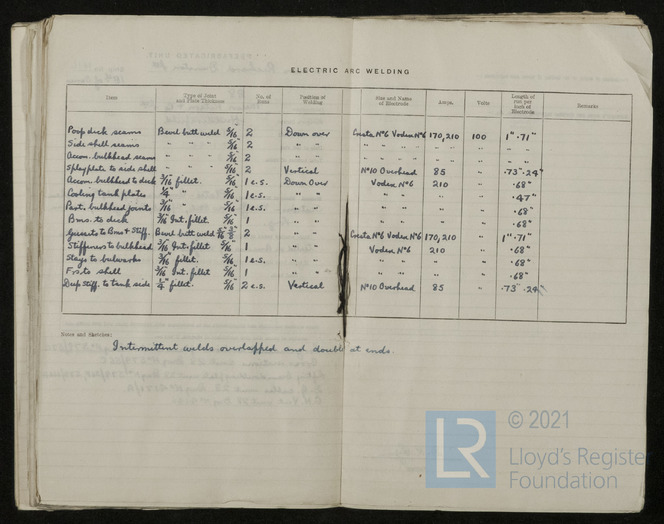 ELECTRIC ARC WELDING
Item Type of Joint and Plate Thickness No. of Runs Position of Welding Size and Name of Electrode Amps. Volts Length of run per inch of Electrode Remarks
Poop deck seams Bevel butt weld 5/16 2 Down over Crista Nº6 Vodex Nº6 170,210 100 1" .71"
Side shell seams " " " 5/16 2 " " " " " " " " "
Accom. bulkhead seams " " " 5/16 2 " " " " " " " "
Splayplate to side shell " " " 5/16 2 Vertical Nº10 Overhead 85 " .73" .24"
Accom. bulkhead to deck 3/16" fillet. 5/16 1 e.s. Down Over Vodex Nº6 210 " .68"
Cooling tank plates 1/4" " 5/16 1 e.s. " " " " " " .47"
Part. bulkhead joints 3/16" " 5/16 1 e.s. " " " " " " .68"
Bms. to deck 3/16 Int. fillet 5/16" 1 " " " " " " .68"
Gussets to Bms & Stiff. Bevel butt weld 5/16" 3/8" 2 " " Crista Nº6 Vodex Nº6 170,210 " 1" .71"
Stiffeners to bulkhead 3/16 Int. fillet 5/16" 1 " " Vodex Nº6 210 " .68"
Stays to bulwarks 3/16 fillet. 5/16" 1 e.s. " " " " " " .68"
Frs. to shell 3/16 Int. fillet 5/16" 1 " " " " " " .68"
Deep Stiff. to tank side 1/4" fillet. 5/16" 2 e.s. Vertical Nº10 Overhead 85 " .73" .24"
Notes and Sketches:
Intermittent welds overlapped and double at ends.
© 2021
LR
Lloyd's Register
Foundation